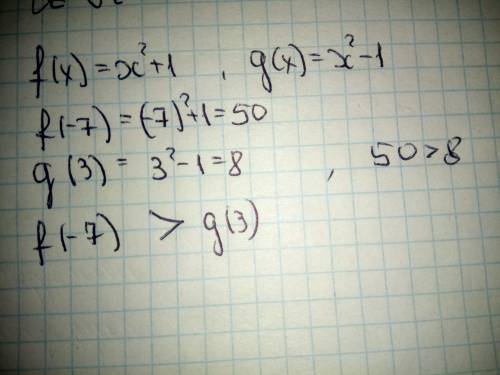 f(x)=x²+1 , g(x)=x²-1
f(-7)=(-7)²+1=50
g(3)= 3²-1=8 , 50>8
f(-7) > g(3)